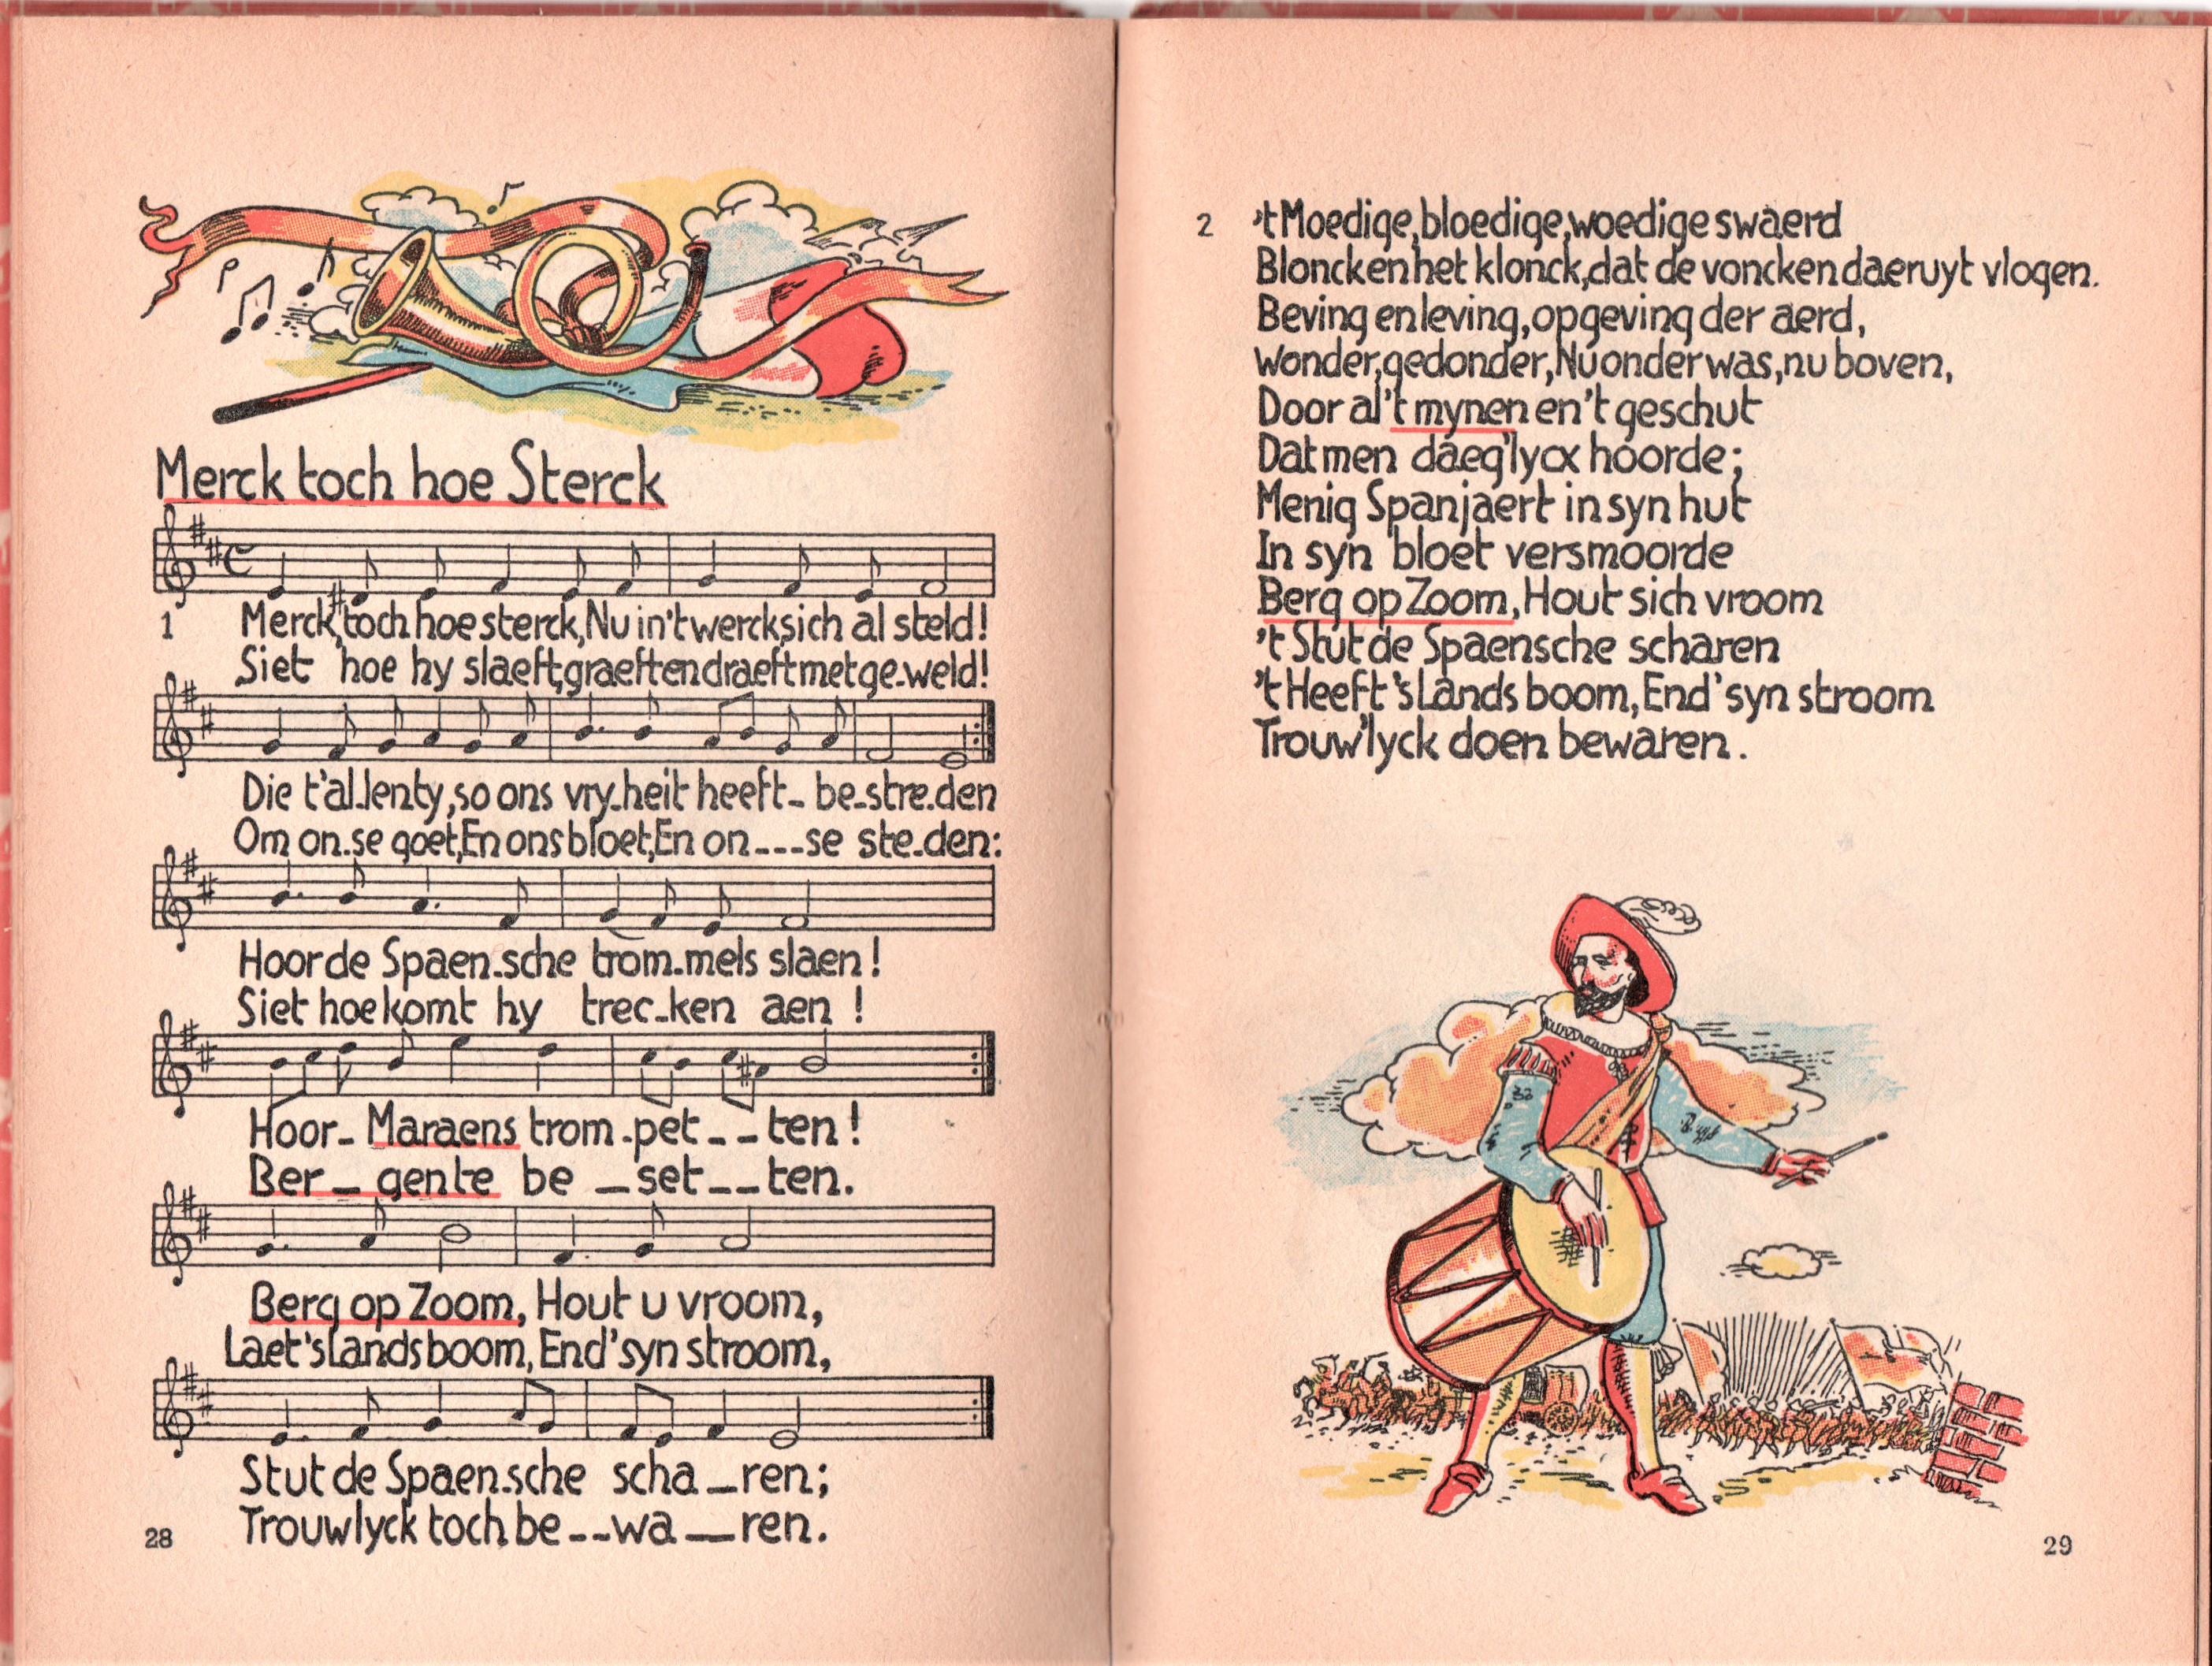 Merck toch hoe Sterck
1 Merck, toch hoe sterck, Nu in't werck, sich al steld!
Siet hoe hy slaeft, graeft en draeft met ge-weld!
Die t'al-lenty, so ons vry-heit heeft- be-stre-den
Om on-se goet, En ons bloet, En on---se ste-den:
Hoor de Spaen-sche trom-mels slaen!
Siet hoe komt hy trec-ken aen!
Hoor- Maraens trom-pet--ten!
Ber-gen te be-set--ten.
Berg op Zoom, Hout u vroom,
Laet 's lands boom, End' syn stroom,
Stut de Spaen-sche scha-ren;
Trouwlyck toch be--wa-ren.
28
2 't Moedige, bloedige, woedige swaerd
Blonck en het klonck, dat de voncken daeruyt vlogen.
Beving en leving, opgeving der aerd,
Wonder, gedonder, Nu onder was, nu boven,
Door al 't mynen en 't geschut
Dat men daeg'lycx hoorde;
Menig Spanjaert in syn hut
In syn bloet versmoorde
Berg op Zoom, Hout sich vroom
't Stut de Spaensche scharen
't Heeft 's Lands boom, End' syn stroom
Trouw'lyck doen bewaren.
29